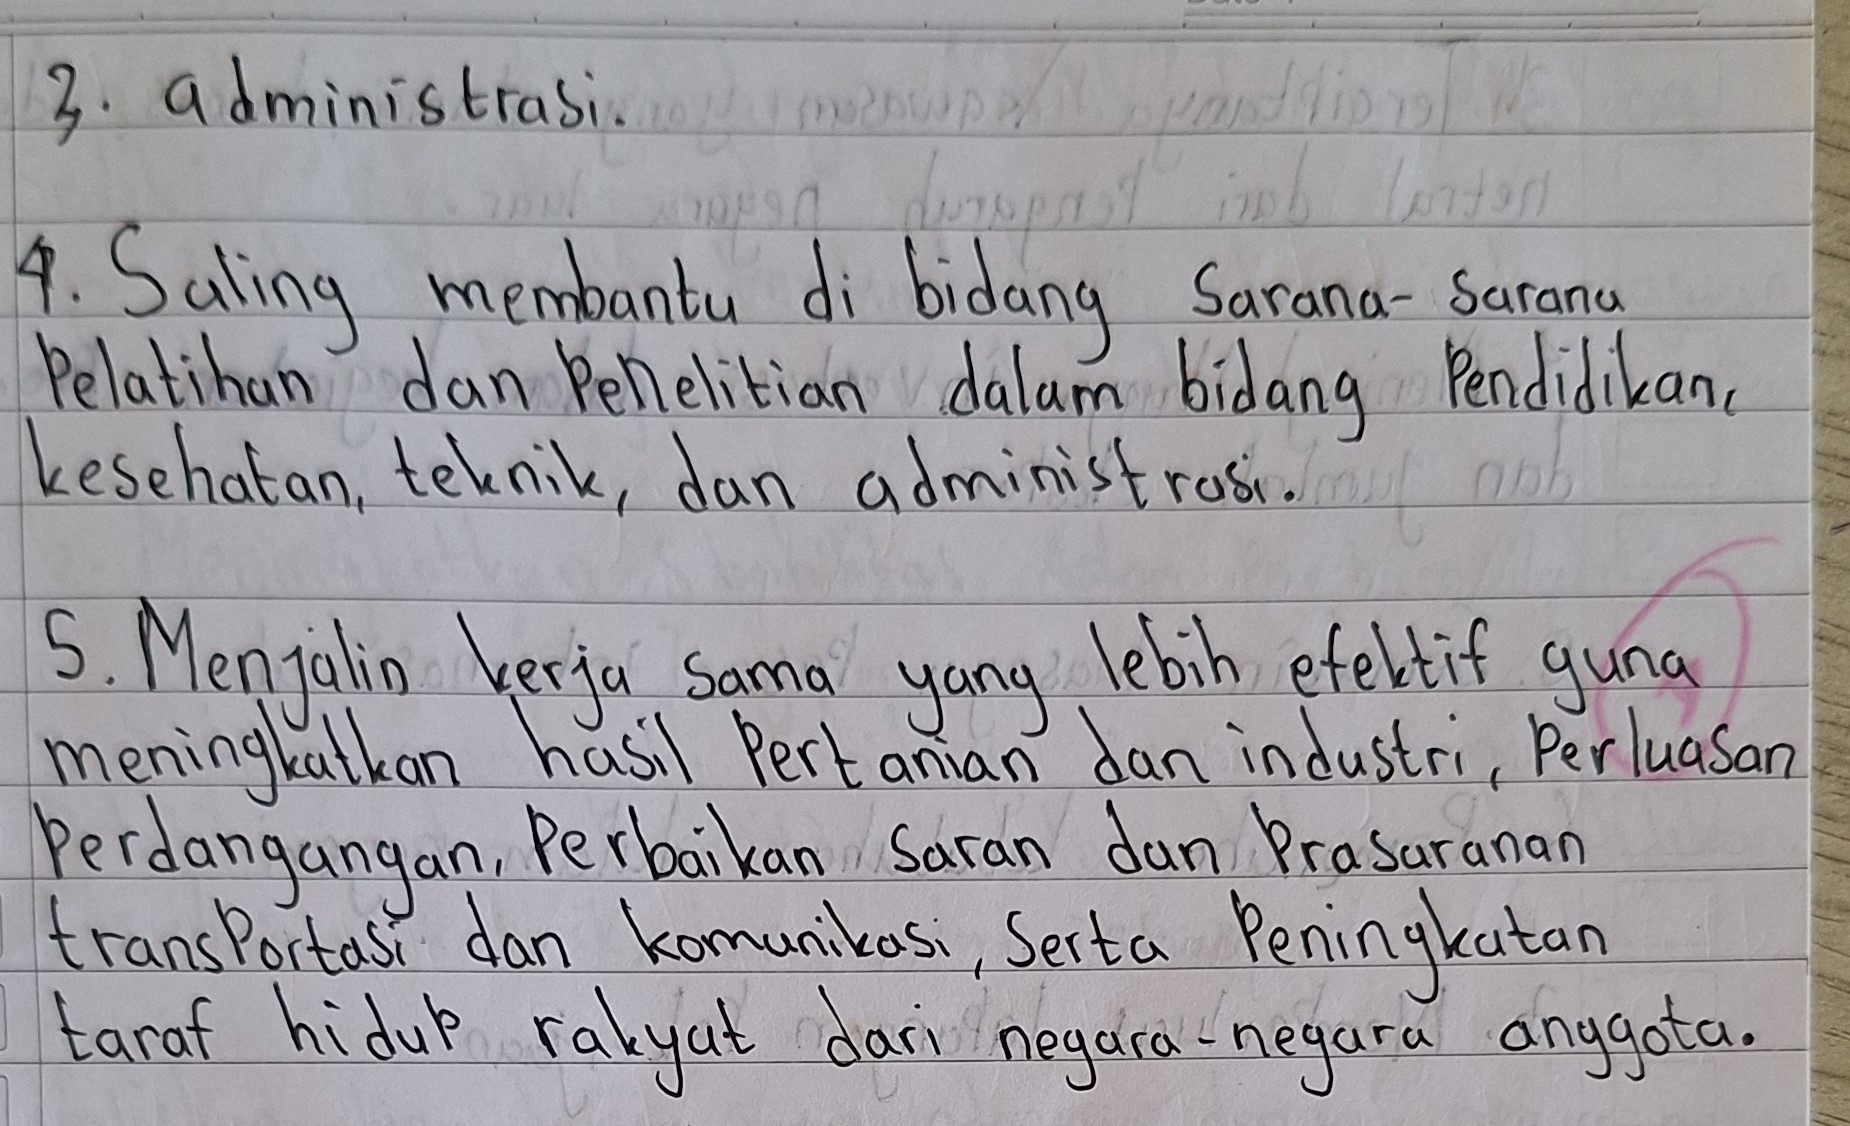 3. administrasi.
4. Saling membantu di bidang Sarana-Sarana
Pelatihan dan Penelitian dalam bidang Pendidikan,
kesehatan, teknik, dan administrasi.
5. Menjalin kerja sama yang lebih efektif guna
meningkatkan hasil Pertanian dan industri, Perluasan
Perdangangan, Perbaikan saran dan Prasaranan
transPortasi dan komunikasi, Serta Peningkatan
taraf hidup rakyat dari negara-negara anggota.